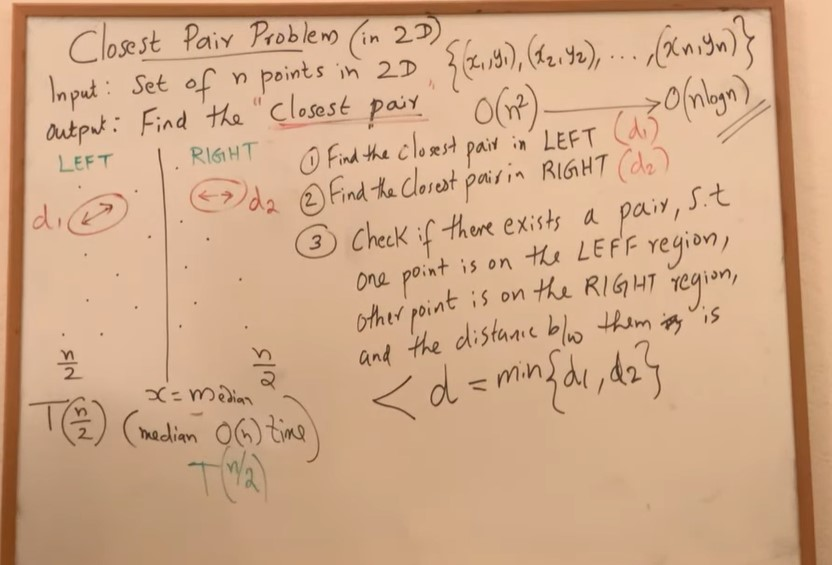 Closest Pair Problem (in 2D)
Input: Set of n points in 2D {(x1,y1), (x2,y2), ..., (xn,yn)}
Output: Find the "Closest pair"
O(n²) → O(nlogn)
LEFT RIGHT
d1 d2
n/2 n/2
x = median
T(n/2) (median O(n) time)
T(n/2)
① Find the closest pair in LEFT (d1)
② Find the Closest pair in RIGHT (d2)
③ Check if there exists a pair, s.t
one point is on the LEFF region,
other point is on the RIGHT region,
and the distance b/w them is
< d = min{d1, d2}